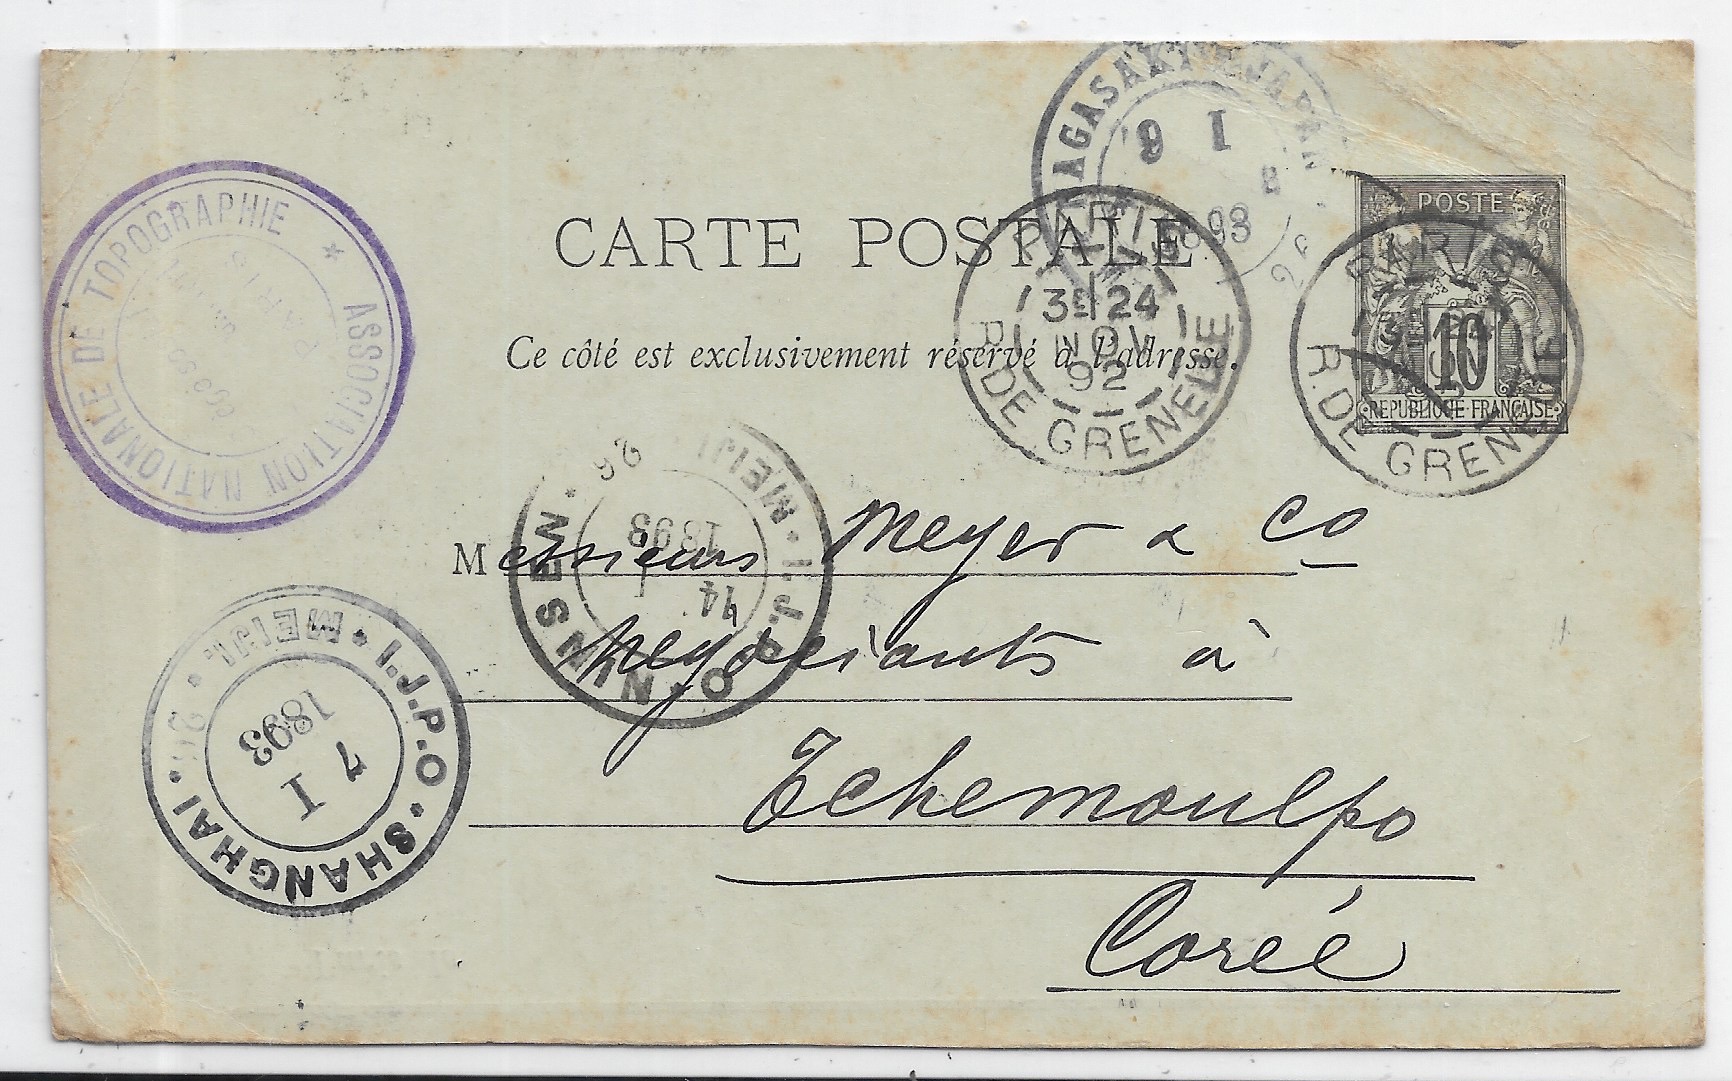 CARTE POSTALE
Ce côté est exclusivement réservé à l'adresse.
POSTE
10
REPUBLIQUE FRANÇAISE
PARIS
3E 24
NOV
92
R. DE GRENELLE
PARIS
R. DE GRENELLE
NAGASAKI JAPAN
1893
ASSOCIATION NATIONALE DE TOPOGRAPHIE *
PARIS
Messieurs Meyer & Co
négociants à
Tchemoulpo
Corée
I.J.P.O. NINSEN. 26 MEIJI.
14
I
1893
I.J.P.O. SHANGHAI. 26 MEIJI.
7
I
1893